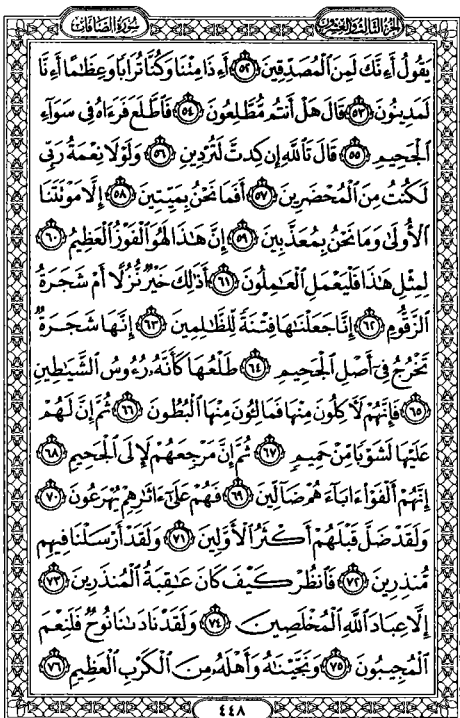 الجزء الثالث والعشرون
سورة الصافات
يَقُولُ أَءِنَّكَ لَمِنَ الْمُصَدِّقِينَ ﴿٥٢﴾ أَءِذَا مِتْنَا وَكُنَّا تُرَابًا وَعِظَامًا أَءِنَّا
لَمَدِينُونَ ﴿٥٣﴾ قَالَ هَلْ أَنتُم مُّطَّلِعُونَ ﴿٥٤﴾ فَاطَّلَعَ فَرَءَاهُ فِي سَوَاءِ
الْجَحِيمِ ﴿٥٥﴾ قَالَ تَاللَّهِ إِن كِدتَّ لَتُرْدِينِ ﴿٥٦﴾ وَلَوْلَا نِعْمَةُ رَبِّي
لَكُنتُ مِنَ الْمُحْضَرِينَ ﴿٥٧﴾ أَفَمَا نَحْنُ بِمَيِّتِينَ ﴿٥٨﴾ إِلَّا مَوْتَتَنَا
الْأُولَىٰ وَمَا نَحْنُ بِمُعَذَّبِينَ ﴿٥٩﴾ إِنَّ هَٰذَا لَهُوَ الْفَوْزُ الْعَظِيمُ ﴿٦٠﴾
لِمِثْلِ هَٰذَا فَلْيَعْمَلِ الْعَامِلُونَ ﴿٦١﴾ أَذَٰلِكَ خَيْرٌ نُّزُلًا أَمْ شَجَرَةُ
الزَّقُّومِ ﴿٦٢﴾ إِنَّا جَعَلْنَاهَا فِتْنَةً لِّلظَّالِمِينَ ﴿٦٣﴾ إِنَّهَا شَجَرَةٌ
تَخْرُجُ فِي أَصْلِ الْجَحِيمِ ﴿٦٤﴾ طَلْعُهَا كَأَنَّهُ رُءُوسُ الشَّيَاطِينِ
﴿٦٥﴾ فَإِنَّهُمْ لَآكِلُونَ مِنْهَا فَمَالِئُونَ مِنْهَا الْبُطُونَ ﴿٦٦﴾ ثُمَّ إِنَّ لَهُمْ
عَلَيْهَا لَشَوْبًا مِّنْ حَمِيمٍ ﴿٦٧﴾ ثُمَّ إِنَّ مَرْجِعَهُمْ لَإِلَى الْجَحِيمِ ﴿٦٨﴾
إِنَّهُمْ أَلْفَوْا ءَابَاءَهُمْ ضَالِّينَ ﴿٦٩﴾ فَهُمْ عَلَىٰ ءَاثَارِهِمْ يُهْرَعُونَ ﴿٧٠﴾
وَلَقَدْ ضَلَّ قَبْلَهُمْ أَكْثَرُ الْأَوَّلِينَ ﴿٧١﴾ وَلَقَدْ أَرْسَلْنَا فِيهِم
مُّنذِرِينَ ﴿٧٢﴾ فَانظُرْ كَيْفَ كَانَ عَاقِبَةُ الْمُنذَرِينَ ﴿٧٣﴾
إِلَّا عِبَادَ اللَّهِ الْمُخْلَصِينَ ﴿٧٤﴾ وَلَقَدْ نَادَانَا نُوحٌ فَلَنِعْمَ
الْمُجِيبُونَ ﴿٧٥﴾ وَنَجَّيْنَاهُ وَأَهْلَهُ مِنَ الْكَرْبِ الْعَظِيمِ ﴿٧٦﴾
٤٤٨